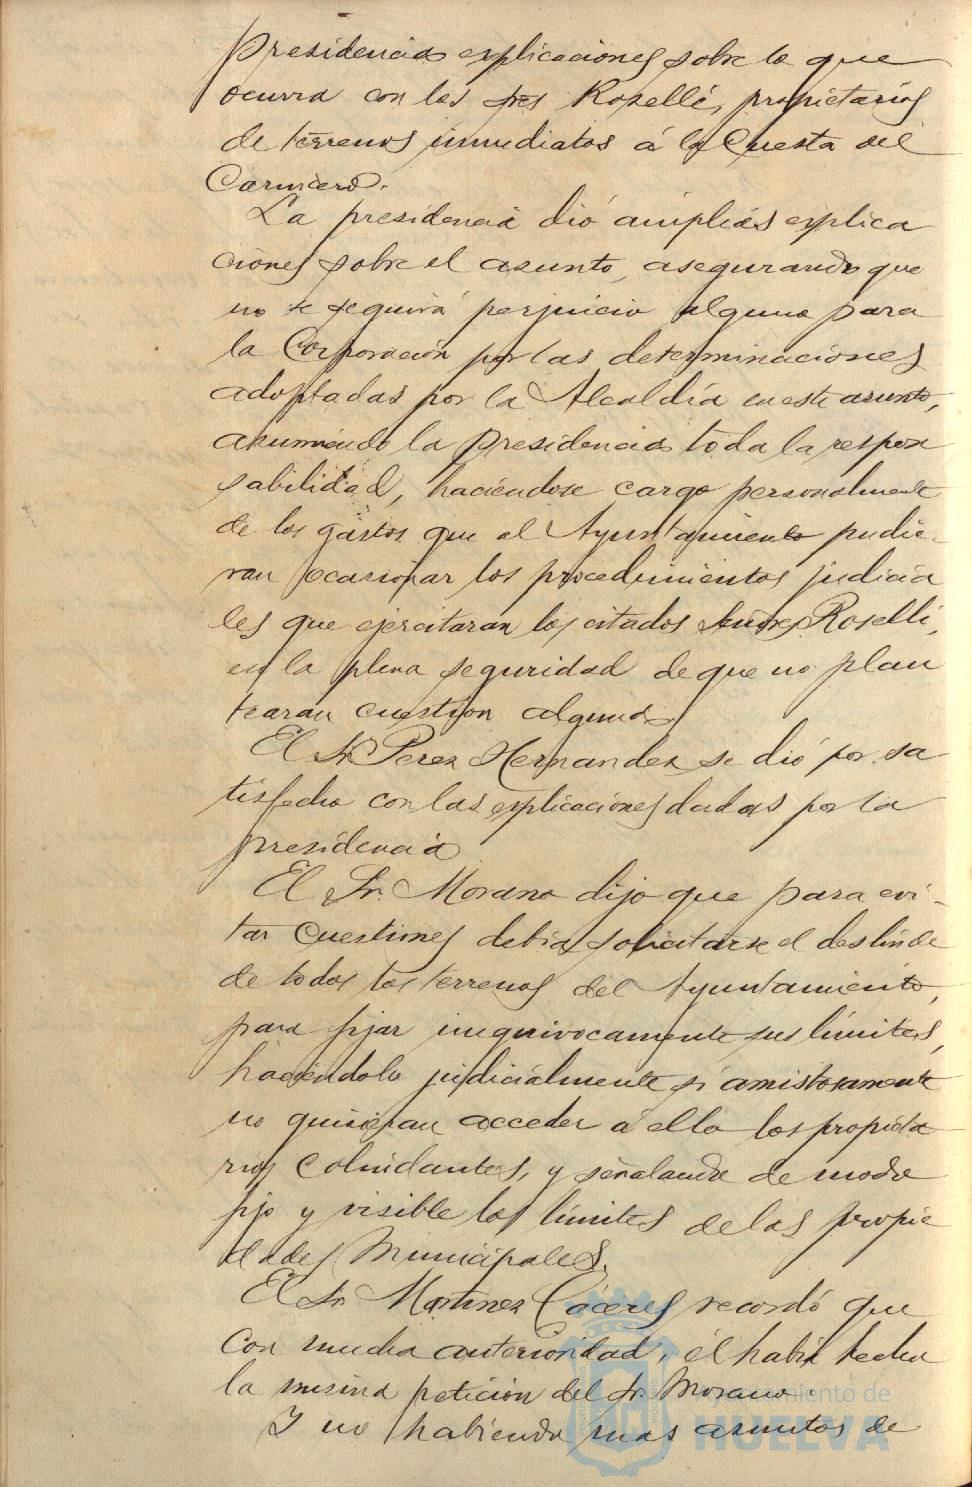 Presidencia explicaciones sobre lo que
ocurra con los sres Roselló, propietarios
de terrenos inmediatos á la Cuesta del
Carnicero.
La presidencia dió amplias explica
ciones sobre el asunto, asegurando que
no se seguirá perjuicio alguno para
la Corporación por las determinaciones
adoptadas por la Alcaldía en este asunto,
asumiendo la Presidencia toda la respon
sabilidad, haciendose cargo personalmente
de los gastos que al Ayuntamiento pudie-
ran ocasionar los procedimientos judicia
les que ejercitaran los citados Señores Roselló,
en la plena seguridad de que no plan
tearan cuestion alguna.
El Sr Perez Hernandez se dió por sa
tisfecho con las explicaciones dadas por la
presidencia
El Sr. Morano dijo que para evi-
tar cuestiones debia solicitarse el deslinde
de todos los terrenos del Ayuntamiento,
para fijar inequivocamente sus límites,
haciéndolo judicialmente si amistosamente
no quisieran acceder á ello los propieta
rios colindantes, y señalando de modo
fijo y visible los límites de las propie
dades Municipales.
El Sr Martinez Cáceres recordó que
con mucha anterioridad, él habia hecho
la misma petición del Sr. Morano.
Y no habiendo mas asuntos de
Ayuntamiento de
HUELVA